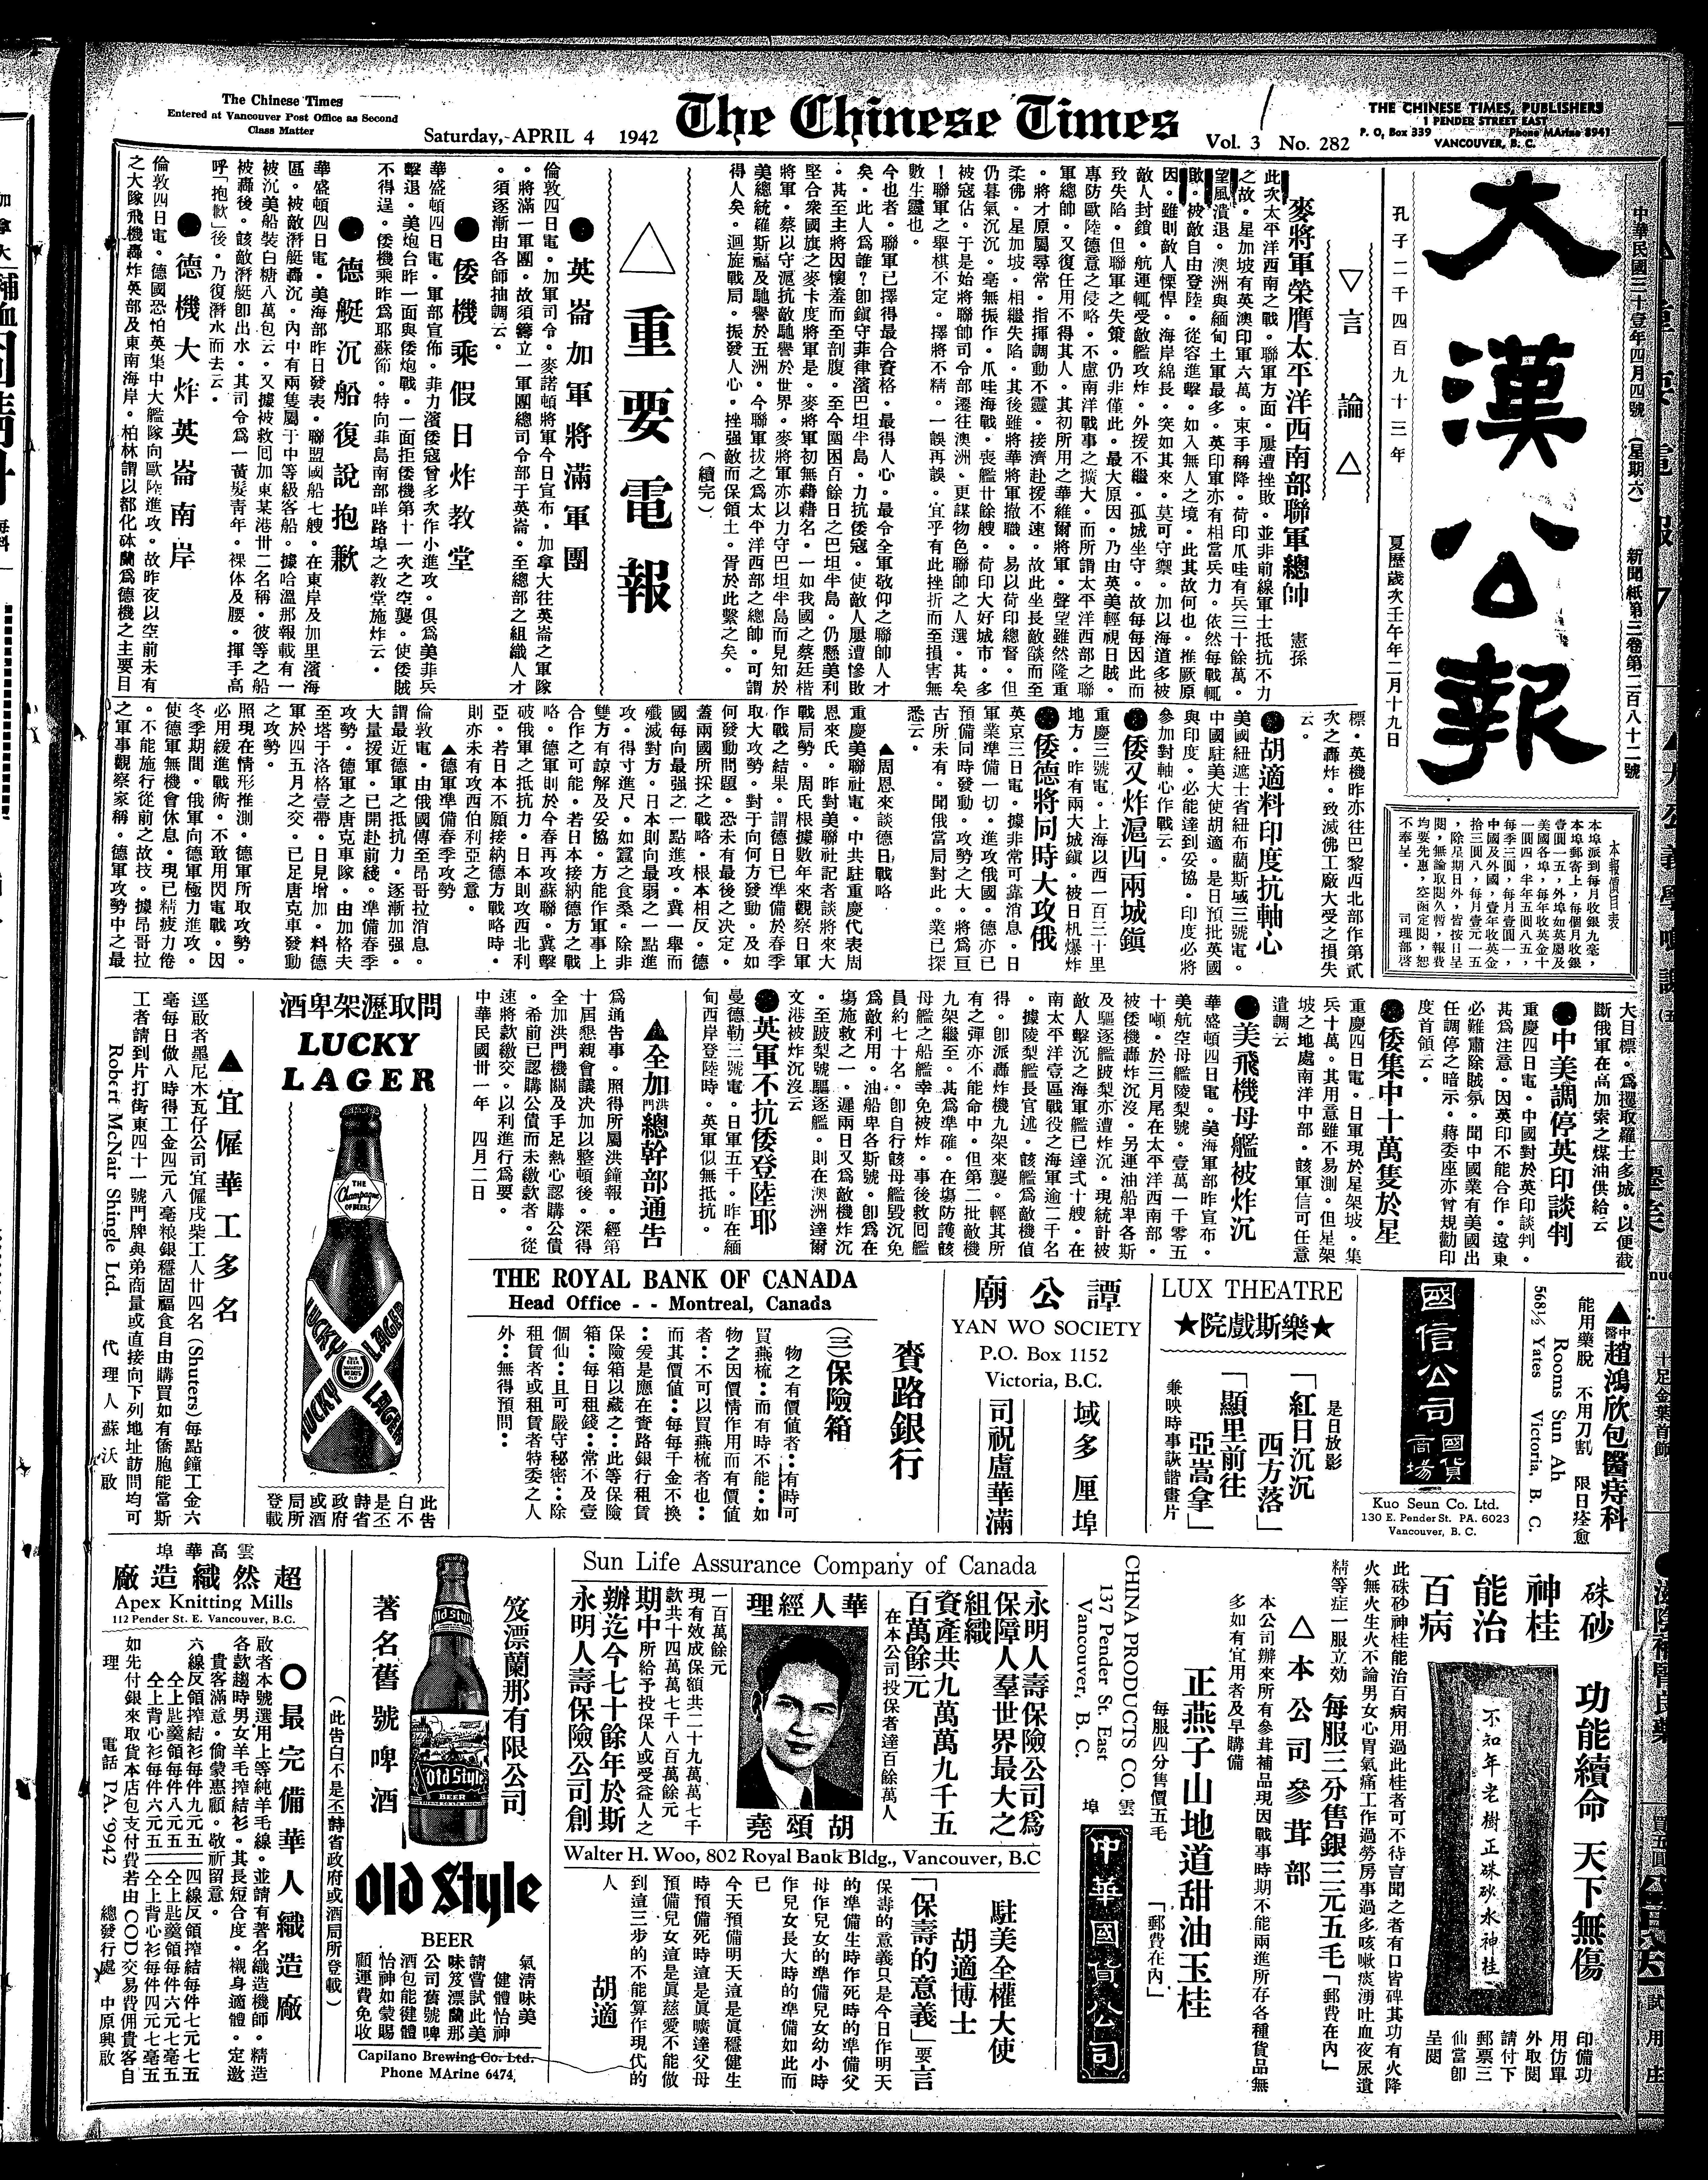 The Chinese Times
Entered at Vancouver Post Office as Second
Class Matter
Saturday, APRIL 4 1942
The Chinese Times
Vol. 3 No. 282
THE CHINESE TIMES, PUBLISHERS
1 PENDER STREET EAST
P. O. Box 339 Phone MArine 8941
VANCOUVER, B. C.
大漢公報
中華民國三十壹年四月四號 (星期六) 新聞紙第三卷第二百八十二號
孔子二千四百九十三年
夏歷歲次壬午年二月十九日
本報價目表
▽言論△
麥將軍榮膺太平洋西南部聯軍總帥 憲孫
此次太平洋西南之戰。聯軍方面。屢遭挫敗。並非前線軍士抵抗不力
之故。星加坡有英澳印軍六萬。束手稱降。荷印爪哇有兵三十餘萬。
望風潰退。澳洲與緬甸土軍最多。英印軍亦有相當兵力。依然每戰輒
敗。被敵自由登陸。從容進擊。如入無人之境。此其故何也。推厥原
因。雖則敵人慓悍。海岸綿長。突如其來。莫可守禦。加以海道多被
敵人封鎖。航運輒受敵艦攻炸。外援不繼。孤城坐守。故每每因此而
致失陷。但聯軍之失策。仍非僅此。最大原因。乃由英美輕視日賊。
專防歐陸德意之侵略。不慮南洋戰事之擴大。而所謂太平洋西部之聯
軍總帥。又復任用不得其人。其初所用之華維爾將軍。聲望雖然隆重
。將才原屬尋常。指揮調動不靈。接濟赴援不速。故此坐長敵燄而至
柔佛。星加坡。相繼失陷。其後雖將華將軍撤職。易以荷印總督。但
仍暮氣沉沉。毫無振作。爪哇海戰。喪艦廿餘艘。荷印大好城市。多
被寇佔。于是始將聯帥司令部遷往澳洲。更謀物色聯帥之人選。甚矣
!聯軍之舉棋不定。擇將不精。一誤再誤。宜乎有此挫折而至損害無
數生靈也。
今也者。聯軍已擇得最合資格。最得人心。最令全軍敬仰之聯帥人才
矣。此人爲誰?卽鎭守菲律濱巴坦半島。力抗倭寇。使敵人屢遭慘敗
。甚至主將因懷羞而至剖腹。至今圍困百餘日之巴坦半島。仍懸美利
堅合衆國旗之麥卡度將軍是。麥將軍初無藉藉名。一如我國之蔡廷楷
將軍。蔡以守滬抗敵馳譽於世界。麥將軍亦以力守巴坦半島而見知於
美總統羅斯福及馳譽於五洲。今聯軍拔之爲太平洋西部之總帥。可謂
得人矣。迴施戰局。振發人心。挫强敵而保領土。胥於此繫之矣。
(續完)
△重要電報
●英崙加軍將滿軍團
倫敦四日電。加軍司令。麥諾頓將軍今日宣布。加拿大往英崙之軍隊
。將滿一軍團。故須籌立一軍團總司令部于英崙。至總部之組織人才
。須逐漸由各師抽調云。
●倭機乘假日炸教堂
華盛頓四日電。軍部宣佈。非力濱倭寇曾多次作小進攻。俱爲美菲兵
擊退。美炮台昨一面與倭炮戰。一面拒倭機第十一次之空襲。使倭賊
不得逞。倭機乘昨爲耶蘇節。特向菲島南部咩路埠之教堂施炸云。
●德艇沉船復說抱歉
華盛頓四日電。美海部昨日發表。聯盟國船七艘。在東岸及加里濱海
區。被敵潛艇轟沉。內中有兩隻屬于中等級客船。據哈溫那報載有一
被沉美船裝白糖八萬包云。又據被救囘加東某港卅二名稱。彼等之船
被轟後。該敵潛艇卽出水。其司令爲一黃髮靑年。裸体及腰。揮手高
呼「抱歉」後。乃復潛水而去云。
●德機大炸英崙南岸
倫敦四日電。德國恐怕英集中大艦隊向歐陸進攻。故昨夜以空前未有
之大隊飛機轟炸英部及東南海岸。柏林謂以都化砵蘭爲德機之主要目
標。英機昨亦往巴黎西北部作第貳
次之轟炸。致滅佛工廠大受之損失
云。
●胡適料印度抗軸心
美國紐遮士省紐布蘭斯域三號電。
中國駐美大使胡適。是日預批英國
與印度。必能達到妥協。印度必將
參加對軸心作戰云。
●倭又炸滬西兩城鎭
重慶三號電。上海以西一百三十里
地方。昨有兩大城鎭。被日机爆炸
●倭德將同時大攻俄
英京三日電。據非常可靠消息。日
軍業準備一切。進攻俄國。德亦已
預備同時發動。攻勢之大。將爲亘
古所未有。聞俄當局對此。業已探
悉云。
▲周恩來談德日戰略
重慶美聯社電。中共駐重慶代表周
恩來氏。昨對美聯社記者談將來大
戰局勢。周氏根據數年來觀察日軍
作戰之結果。謂德日已準備於春季
取大攻勢。對于向何方發動。及如
何發動問題。恐未有最後之決定。
蓋兩國所採之戰略。根本相反。德
國每向最强之一點進攻。冀一舉而
殲滅對方。日本則向最弱之一點進
攻。得寸進尺。如蠶之食桑。除非
雙方有諒解及妥協。方能作軍事上
合作之可能。若日本接納德方之戰
略。德軍則於今春再攻蘇聯。冀擊
破俄軍之抵抗力。日本則攻西北利
亞。若日本不願接納德方戰略時。
則亦未有攻西伯利亞之意。
▲德軍準備春季攻勢
倫敦電。由俄國傳至昂哥拉消息。
謂最近德軍之抵抗力。逐漸加强。
大量援軍。已開赴前綫。準備春季
攻勢。德軍之唐克車隊。由加格夫
至塔于洛格壹帶。日見增加。料德
軍於四五月之交。已足唐克車發動
之攻勢。
照現在情形推測。德軍所取攻勢。
必用緩進戰術。不敢用閃電戰。因
冬季期間。俄軍向德軍極力進攻。
使德軍無機會休息。現已精疲力倦
。不能施行從前之故技。據昂哥拉
之軍事觀察家稱。德軍攻勢中之最
大目標。爲攫取羅士多城。以便截
斷俄軍在高加索之煤油供給云
●中美調停英印談判
重慶四日電。中國對於英印談判。
甚爲注意。因英印不能合作。遠東
必難肅除賊氛。聞中國業有美國出
任調停之暗示。蔣委座亦曾規勸印
度首領云。
●倭集中十萬隻於星
重慶四日電。日軍現於星架坡。集
兵十萬。其用意雖不易測。但星架
坡之地處南洋中部。該軍信可任意
遣調云
●美飛機母艦被炸沉
華盛頓四日電。美海軍部昨宣布。
美航空母艦陵梨號。壹萬一千零五
十噸。於三月尾在太平洋西南部。
被倭機轟炸沉沒。另運油船卑各斯
及驅逐艦跛梨亦遭炸沉。現統計被
敵人擊沉之海軍艦已達弍十艘。在
南太平洋壹區戰役之海軍逾二千名
。據陵梨艦長官述。該艦爲敵機偵
得。卽派轟炸機九架來襲。輕其所
有之彈亦不能命中。但第二批敵機
九架繼至。甚爲準確。在塲防護該
母艦之船艦幸免被炸。事後救囘艦
員約七十名。卽自行該母艦毀沉免
爲敵利用。油船卑各斯號。卽爲在
塲施救之一。遲兩日又爲敵機炸沉
。至跛梨號驅逐艦。則在澳洲達爾
文港被炸沉沒云
●英軍不抗倭登陸耶
曼德勒三號電。日軍五千。昨在緬
甸西岸登陸時。英軍似無抵抗。
▲全加洪門總幹部通告
爲通告事。照得所屬洪鐘報。經第
十屆懇親會議決加以整頓後。深得
全加洪門機關及手足熱心認購公債
。希前已認購公債而未繳款者。從
速將款繳交。以利進行爲要。
中華民國卅一年 四月二日
問取瀝架卑酒
LUCKY
LAGER
THE Champagne OF BEERS
LUCKY LAGER
此告白不是丕詩省政府或酒局所登載
▲宜僱華工多名
逕啟者墨尼木瓦仔公司宜僱戍柴工人廿四名 (Shuters) 每點鐘工金六
毫每日做八時得工金四元八毫粮銀穩固福食自由購買如有僑胞能當斯
工者請到片打街東四十一號門牌與弟商量或直接向下列地址訪問均可
Robert McNair Shingle Ltd. 代理人蘇沃啟
▲中醫趙鴻欣包醫痔科
能用藥脫 不用刀割 限日痊愈
Rooms Sun Ah
568½ Yates Victoria, B. C.
國信公司
國貨商場
Kuo Seun Co. Ltd.
130 E. Pender St. PA. 6023
Vancouver, B. C.
LUX THEATRE
★樂斯戲院★
是日放影
「紅日沉沉
西方落」
「顯里前往
亞嵩拿」
兼映時事詼諧畫片
譚公廟
YAN WO SOCIETY
P.O. Box 1152
Victoria, B.C.
域多厘埠
司祝盧華滿
THE ROYAL BANK OF CANADA
Head Office - - Montreal, Canada
賚路銀行
(三)保險箱
物之有價值者:有時可
買燕梳:而有時不能:如
物之因價情作用而有價值
者:不可以買燕梳者也:
而其價值:每每千金不換
:爰是應在賚路銀行租賃
保險箱以藏之:此等保險
箱:每日租錢:常不及壹
個仙:且可嚴守秘密:除
租賃者或租賃者特委之人
外:無得預問:
硃砂神桂能治百病
功能續命 天下無傷
不知年老樹正硃砂水神桂
印備功用仿單外取閱請付下郵票三仙當卽呈閱
此硃砂神桂能治百病用過此桂者可不待言聞之者有口皆碑其功有火降
火無火生火不論男女心胃氣痛工作過勞房事過多咳嗽痰湧吐血夜尿遺
精等症一服立効 每服三分售銀三元五毛「郵費在內」
△本公司參茸部
本公司辦來所有參茸補品現因戰事時期不能兩進所存各種貨品無
多如有宜用者及早購備
正燕子山地道甜油玉桂
每服四分售價五毛 「郵費在內」
CHINA PRODUCTS CO.
137 Pender St. East
Vancouver, B. C.
雲埠
中華國貨公司
Sun Life Assurance Company of Canada
永明人壽保險公司爲
保障人羣世界最大之
組織
資產共九萬萬九千五
百萬餘元
在本公司投保者達百餘萬人
華人經理
胡頌堯
現有效成保額共二十九萬萬七千
一百萬餘元
款共十四萬萬七千八百萬餘元
期中所給予投保人或受益人之
辦迄今七十餘年於斯
永明人壽保險公司創
Walter H. Woo, 802 Royal Bank Bldg., Vancouver, B.C
駐美全權大使
胡適博士
「保壽的意義」要言
保壽的意義只是今日作明天
的準備生時作死時的準備父
母作兒女的準備兒女幼小時
作兒女長大時的準備如此而
已
今天預備明天這是眞穩健生
時預備死時這是眞曠達父母
預備兒女這是眞慈愛不能做
到這三步的不能算作現代的
人
胡適
笈漂蘭那有限公司
著名舊號啤酒
Old Style
BEER
Old Style
BEER
氣清味美
健體怡神
請嘗試此美
味笈漂蘭那
公司舊號啤
酒包能健體
怡神如蒙賜
顧運費免收
Capilano Brewing Co. Ltd.
Phone MArine 6474.
(此告白不是丕詩省政府或酒局所登載)
雲高華埠
超然織造廠
Apex Knitting Mills
112 Pender St. E. Vancouver, B.C.
○最完備華人織造廠
啟者本號選用上等純羊毛線。並請有著名織造機師。精造
各款趨時男女羊毛搾結衫。其長短合度。襯身適體。定邀
貴客滿意。倘蒙惠顧。敬祈留意。
六線反領搾結衫每件九元五 四線反領搾結每件七元七五
仝上匙羹領每件八元五 仝上匙羹領每件六元七毫五
仝上背心衫每件六元五 仝上背心衫每件四元七毫五
如先付銀來取貨本店包支付費若由COD交易費佣貴客自
理 電話 PA. 9942 總發行處 中原興啟